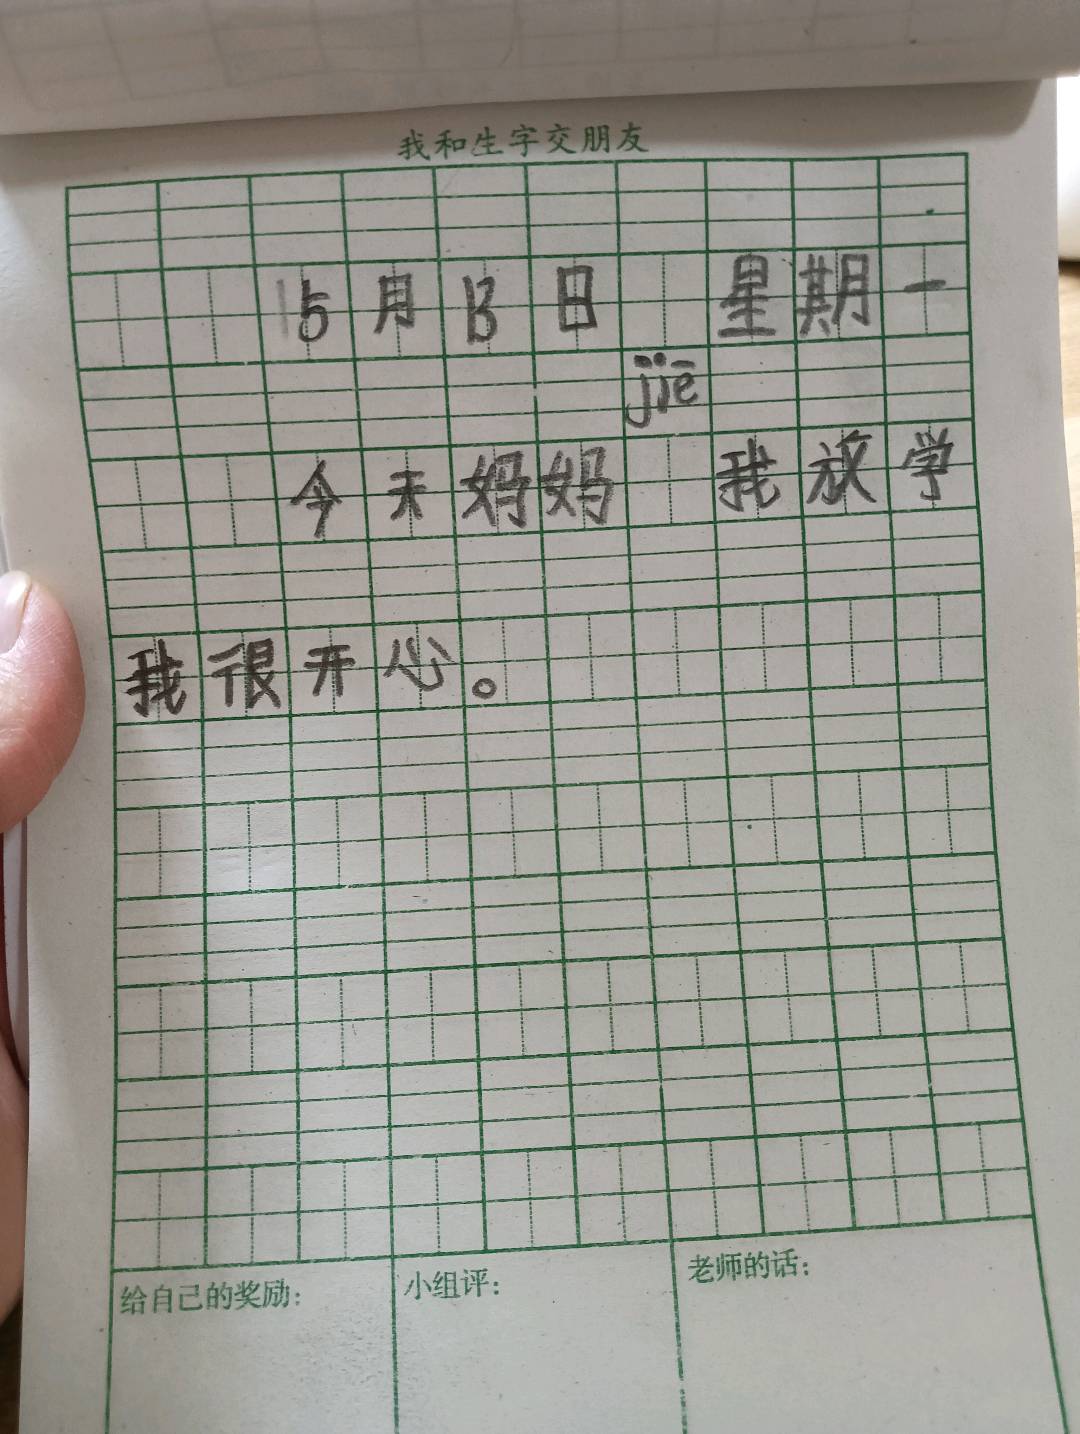 我和生字交朋友
5月13日 星期一
jiē
今天妈妈 我放学
我很开心。
给自己的奖励:
小组评:
老师的话: